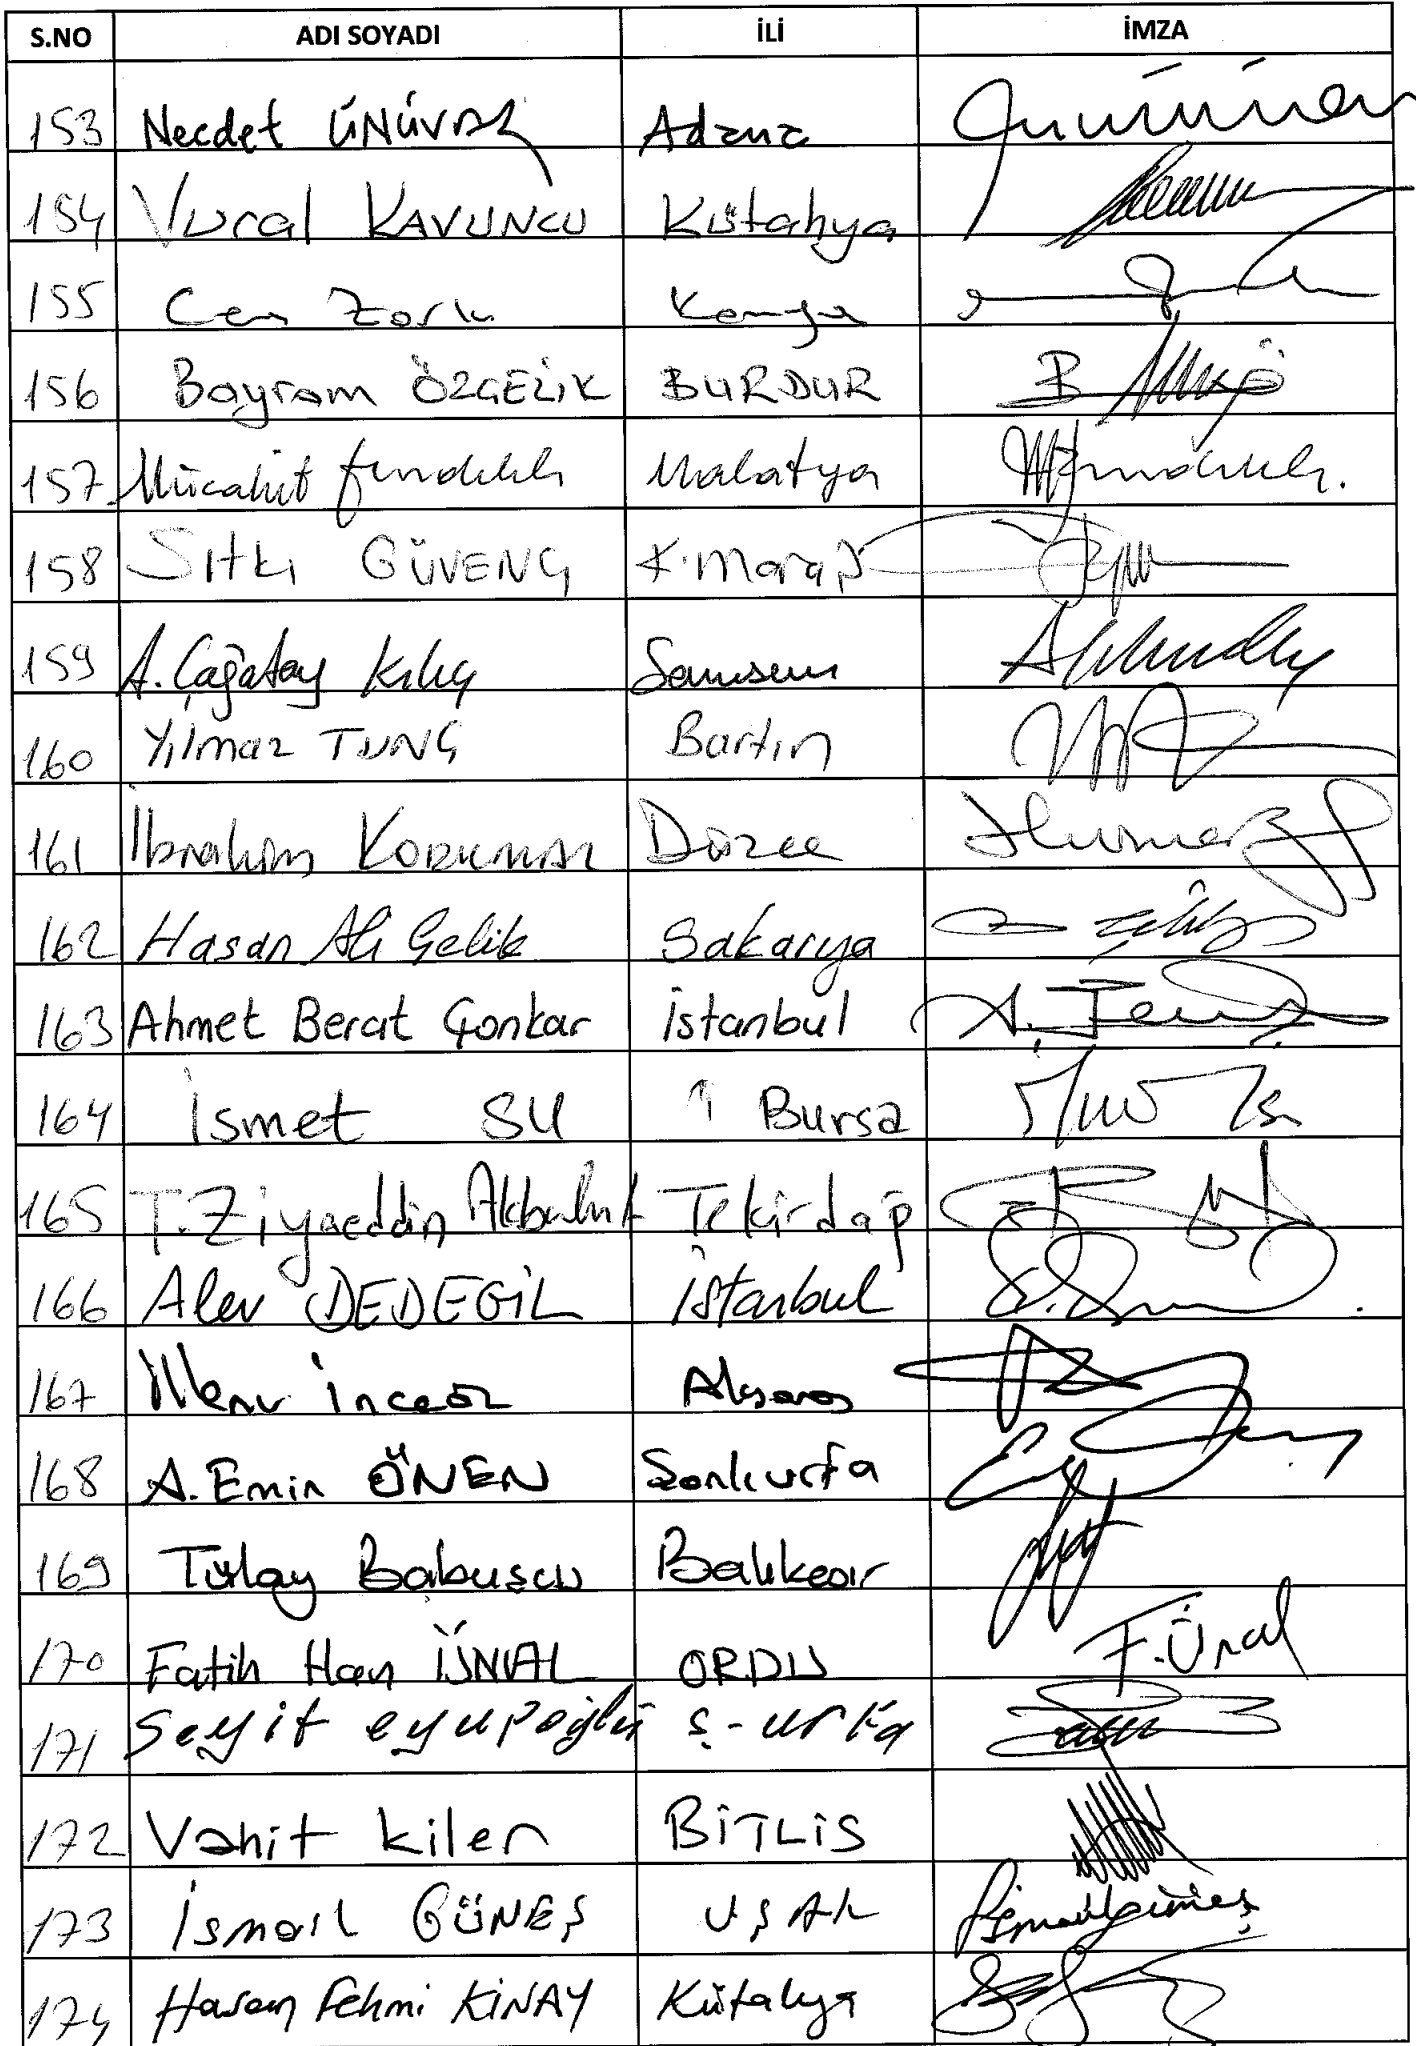 S.NO ADI SOYADI İLİ İMZA
153 Necdet ÜNÜVAR Adana
154 Vural KAVUNCU Kütahya
155 Cem Zorlu Konya
156 Bayram ÖZÇELİK BURDUR
157 Mücahit Fındıklı Malatya
158 Sıtkı GÜVENÇ K.Maraş
159 A. Çağatay Kılıç Samsun
160 Yılmaz TUNÇ Bartın
161 İbrahim KORKMAZ Düzce
162 Hasan Ali Çelik Sakarya
163 Ahmet Berat Çonkar İstanbul
164 İsmet SU Bursa
165 T. Ziyaeddin Akbulut Tekirdağ
166 Alev DEDEGİL İstanbul
167 İlknur İnceöz Aksaray
168 A. Emin ÖNEN Şanlıurfa
169 Tülay Babuşcu Balıkesir
170 Fatih Han ÜNAL ORDU F. Ünal
171 Seyit eyupoğlu Ş-urfa
172 Vahit Kiler BİTLİS
173 İsmail GÜNEŞ UŞAK
174 Hasan Fehmi KİNAY Kütahya